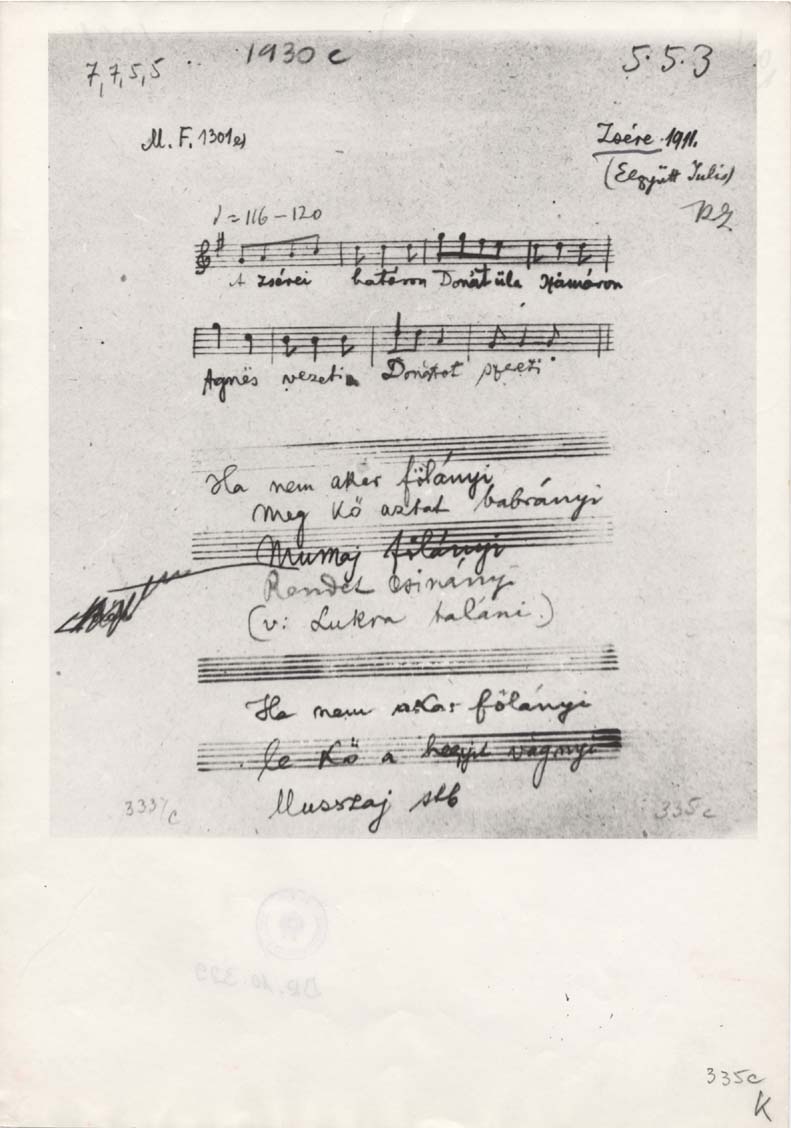 7,7,5,5
1930 c
5.5.3
M. F. 1301e)
Zsére 1911.
(Együtt Julis)
♩=116-120
A zsérei határon Donát üla Hámáron
Agnës vezeti Donátot
Ha nem akar fölányi
Meg kő aztat babrányi
Mumaj fölányi
Rendet csinányi
(v: Lukra taláni.)
Ha nem akar fölányi
le kő a hegyit vágnyi
Musszaj stb
333/c
335c
335c
K